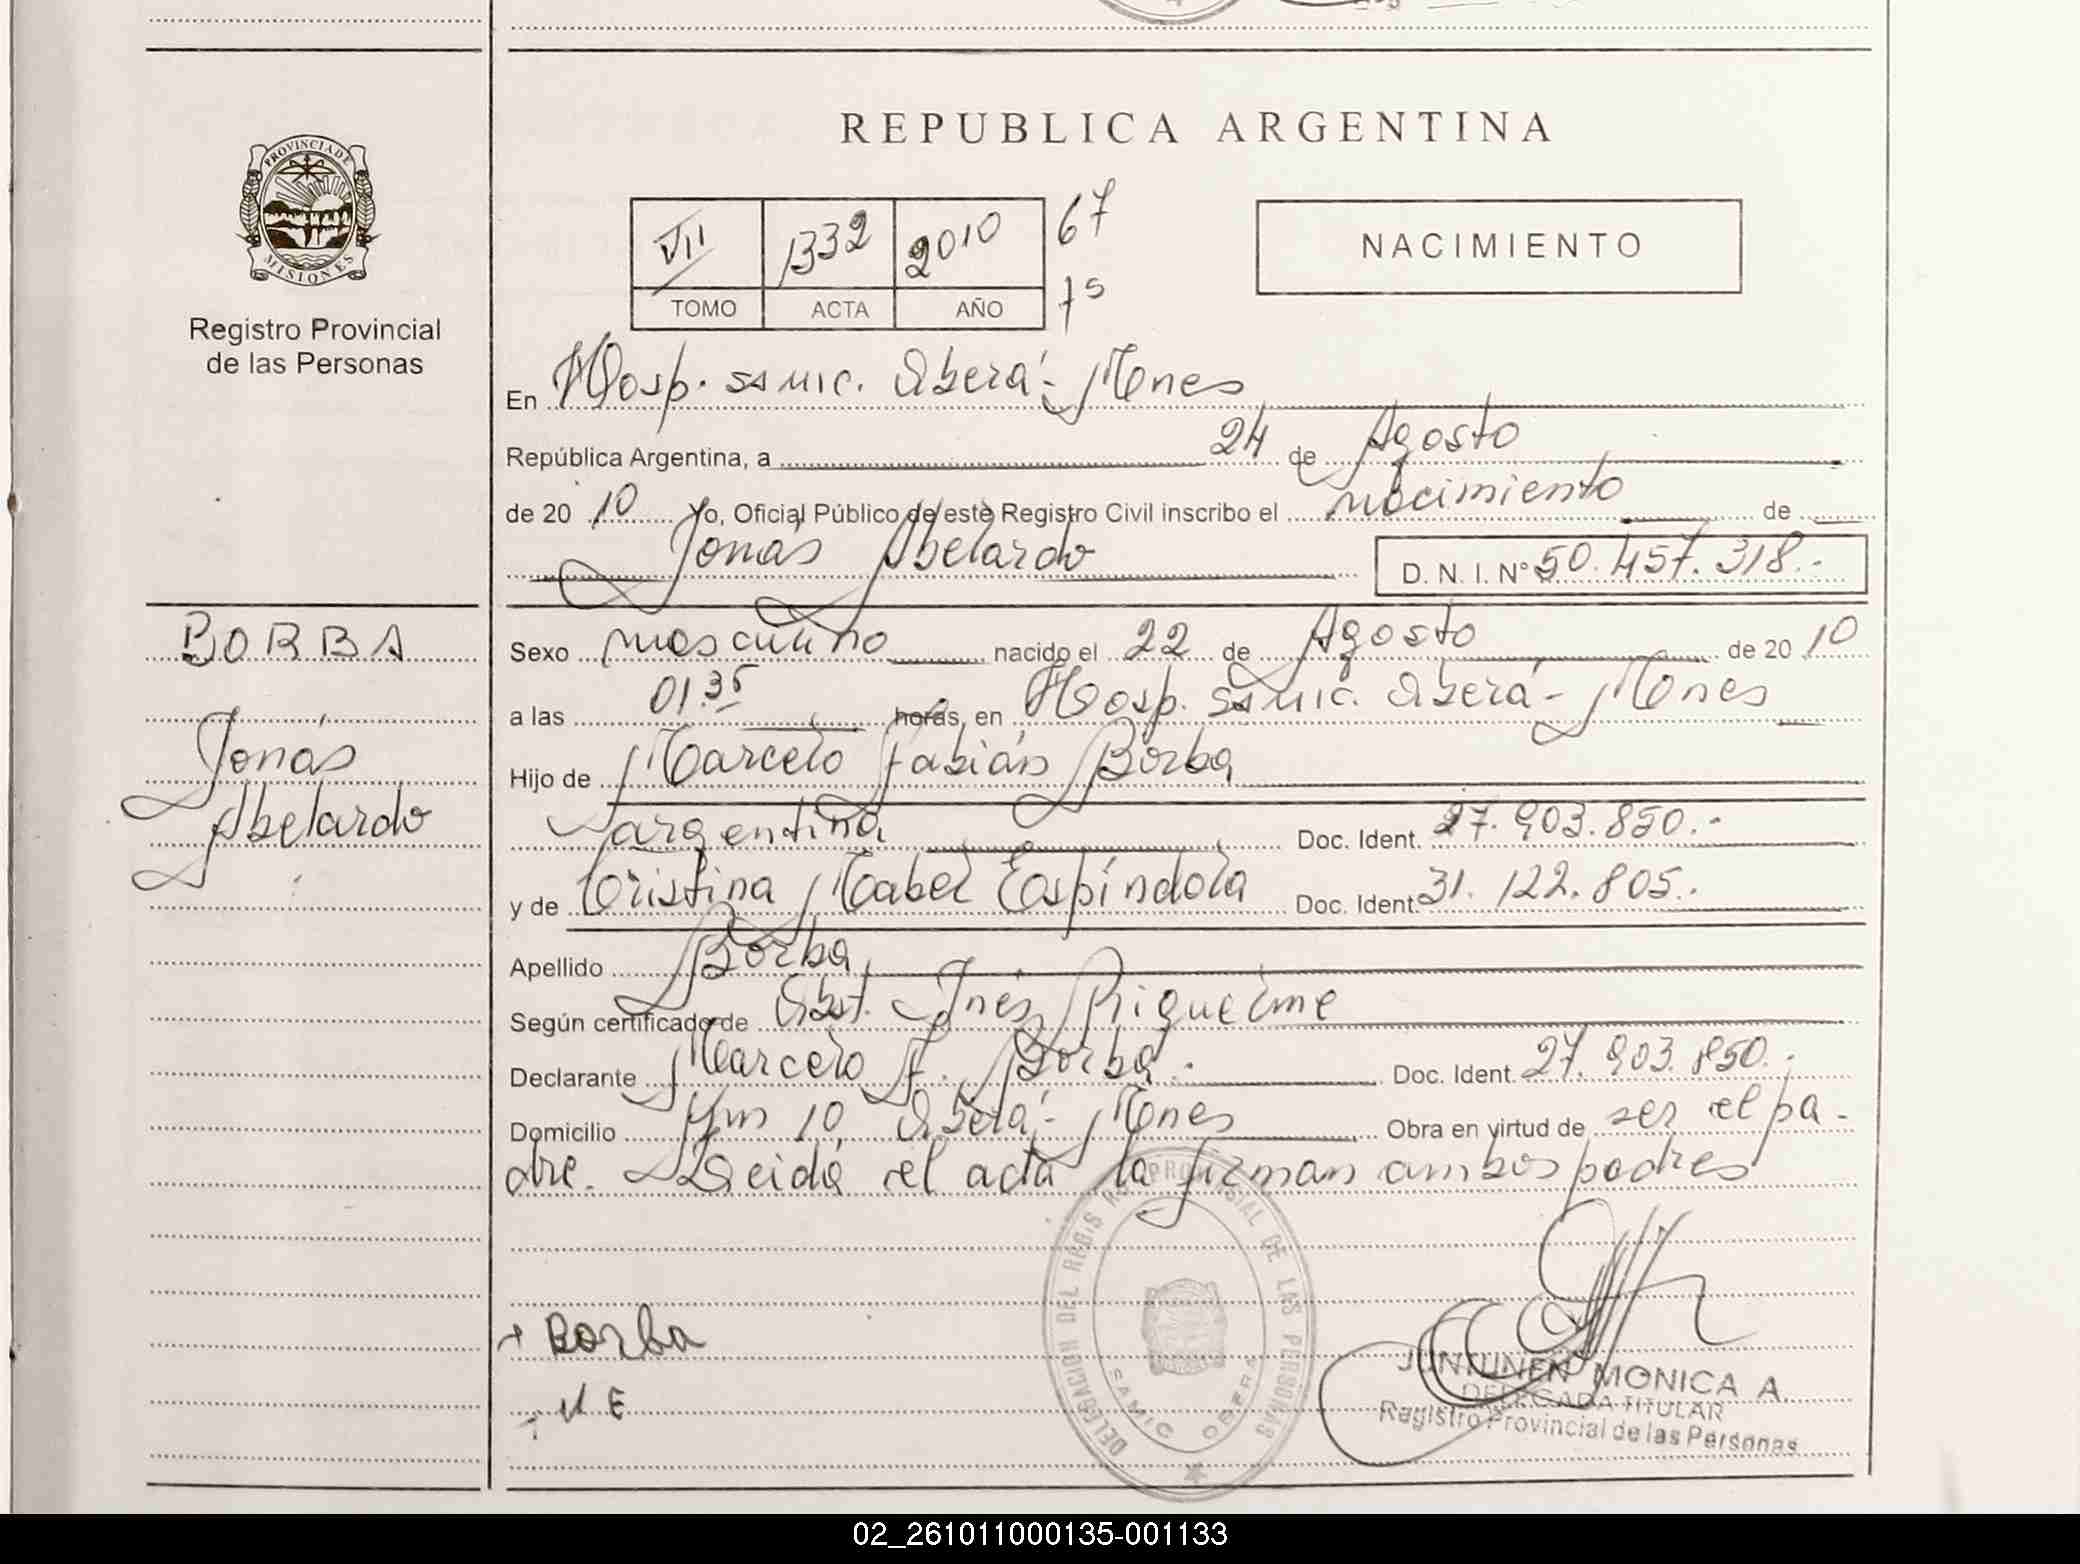 REPUBLICA ARGENTINA
PROVINCIA DE
MISIONES
Registro Provincial
de las Personas
VII 1332 2010 67
TOMO ACTA AÑO 75
NACIMIENTO
En Hosp. SAMIC. Oberá - Mnes
República Argentina, a 24 de Agosto
de 20 10 Yo, Oficial Público de este Registro Civil inscribo el nacimiento de
Jonás Abelardo D. N. I. Nº 50.457.318.-
BORBA
Jonás
Abelardo
Sexo masculino nacido el 22 de Agosto de 20 10
a las 01.35 horas, en Hosp. SAMIC. Oberá - Mnes
Hijo de Marcelo Fabián Borba
argentina Doc. Ident. 27.903.850.-
y de Cristina Mabel Espíndola Doc. Ident. 31.122.805.-
Apellido Borba
Según certificado de Obst. Inés Riquelme
Declarante Marcelo F. Borba.- Doc. Ident. 27.903.850.-
Domicilio Km 10 Oberá - Mnes Obra en virtud de ser el pa-
dre. Leída el acta la firman ambos padres
DELEGACION DEL REGIS PROVINCIAL DE LAS PERSONAS
SAMIC OBERA
+ Borba
+ M E
JUNTUNEN MONICA A.
DELEGADA TITULAR
Registro Provincial de las Personas
02_261011000135-001133